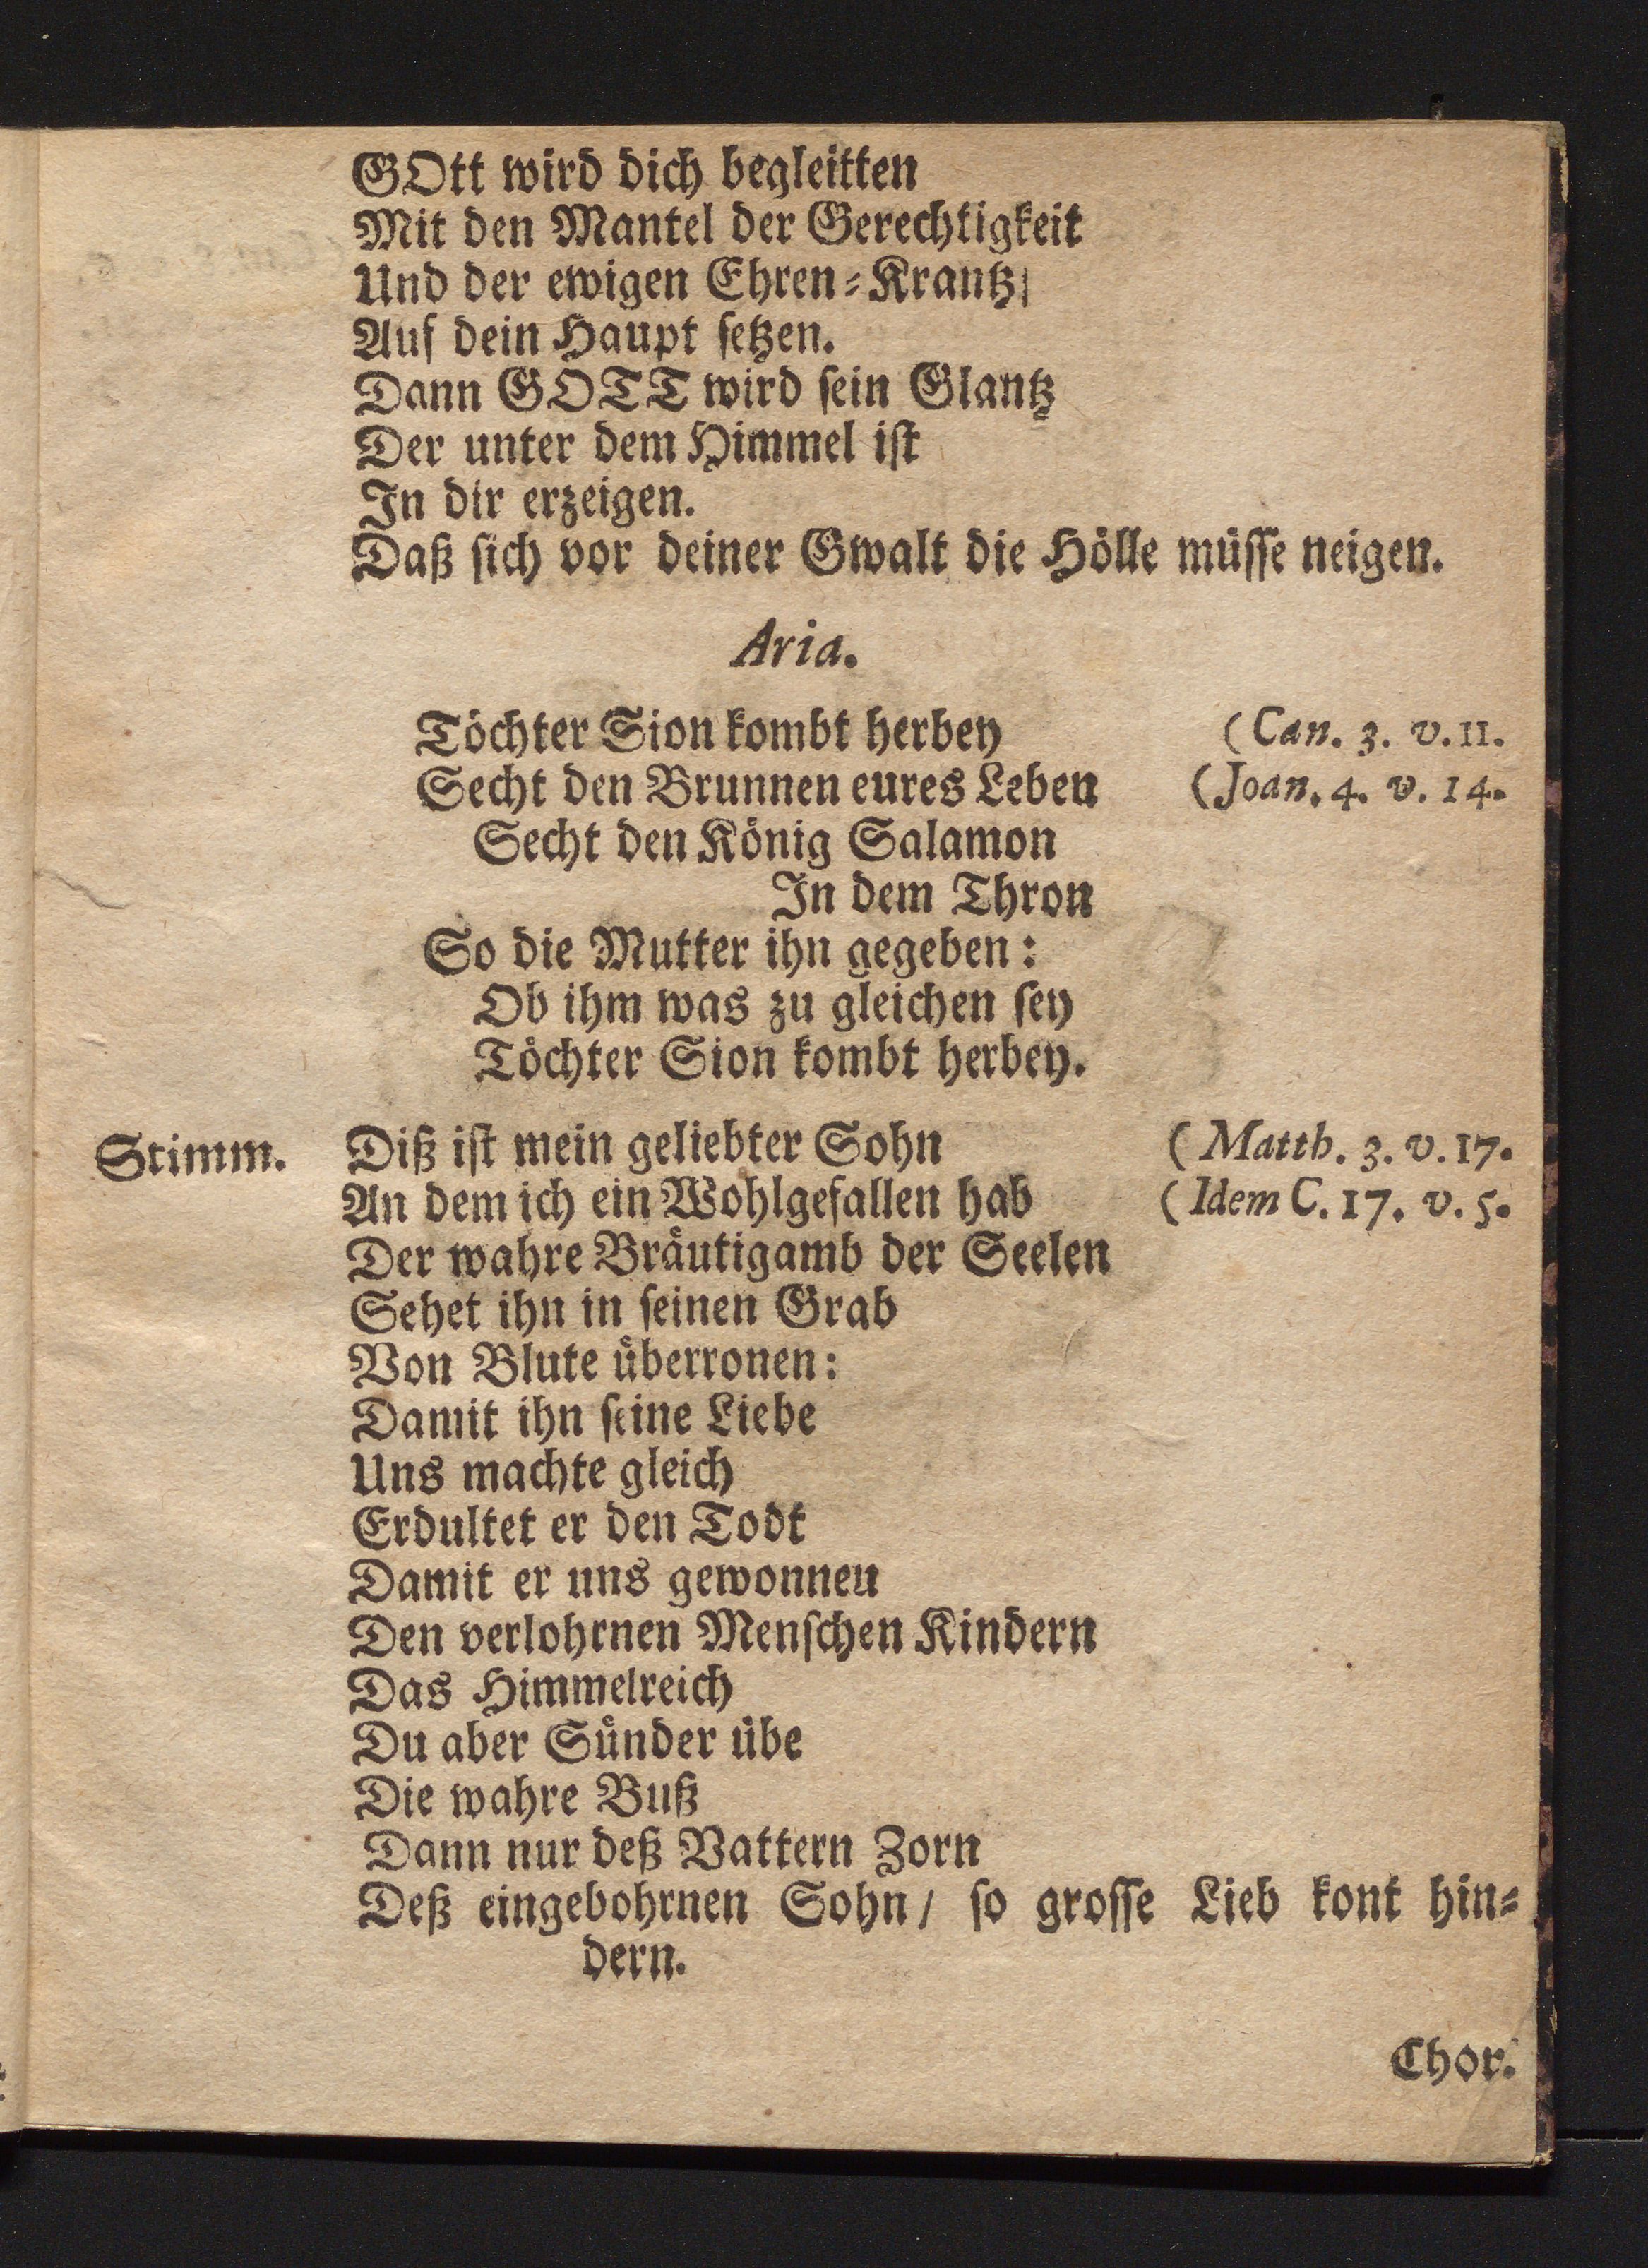 GOtt wird dich begleitten
Mit den Mantel der Gerechtigkeit
Und der ewigen Ehren-Krantz/
Auf dein Haupt setzen.
Dann GOTT wird sein Glantz
Der unter dem Himmel ist
In dir erzeigen.
Daß sich vor deiner Gwalt die Hölle müsse neigen.
Aria.
Töchter Sion kombt herbey (Can. 3. v. 11.
Secht den Brunnen eures Leben (Joan. 4. v. 14.
Secht den König Salamon
In dem Thron
So die Mutter ihn gegeben:
Ob ihm was zu gleichen sey
Töchter Sion kombt herbey.
Stimm. Diß ist mein geliebter Sohn (Matth. 3. v. 17.
An dem ich ein Wohlgefallen hab (Idem C. 17. v. 5.
Der wahre Bräutigamb der Seelen
Sehet ihn in seinen Grab
Von Blute überronen:
Damit ihn seine Liebe
Uns machte gleich
Erdultet er den Todt
Damit er uns gewonnen
Den verlohrnen Menschen Kindern
Das Himmelreich
Du aber Sünder übe
Die wahre Buß
Dann nur deß Vattern Zorn
Deß eingebohrnen Sohn/ so grosse Lieb kont hin-
dern.
Chor.